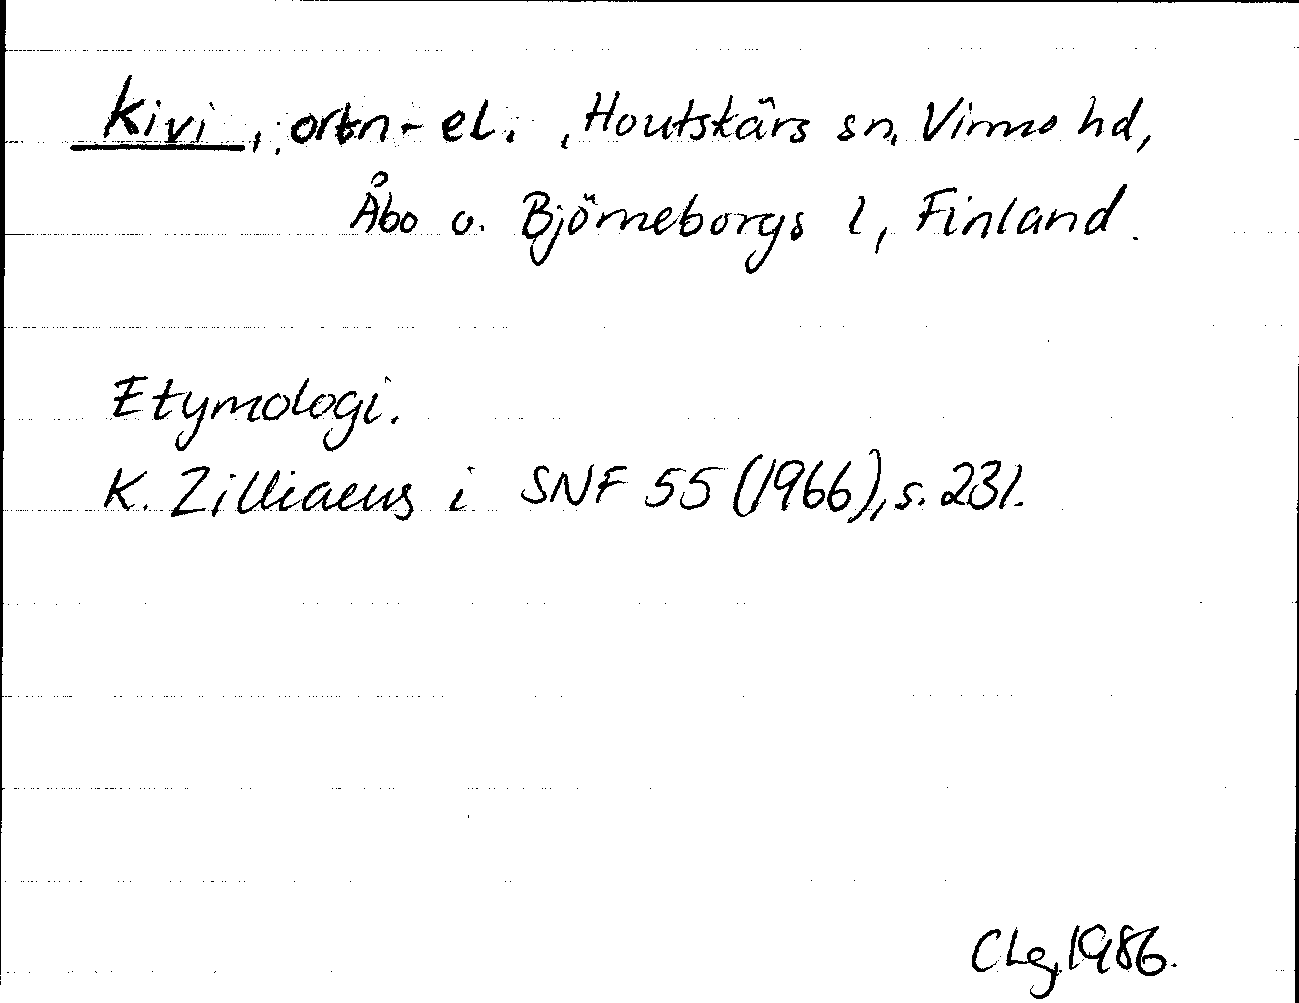 Kivi, ortn-el., Houtskärs sn, Virmo hd,
Åbo o. Björneborgs l, Finland.
Etymologi.
K. Zilliacus i SNF 55 (1966), s. 231.
CLg, 1986.